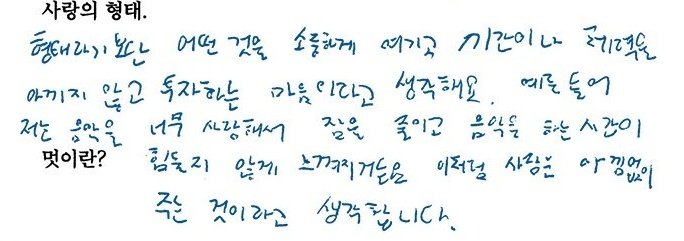 사랑의 형태.
형태라기 보단 어떤 것을 소중하게 여기고 시간이나 체력을
아끼지 않고 투자하는 마음이라고 생각해요. 예를 들어
저는 음악을 너무 사랑해서 잠을 줄이고 음악을 하는 시간이
멋이란? 힘들지 않게 느껴지거든요 이처럼 사랑은 아낌없이
주는 것이라고 생각합니다.